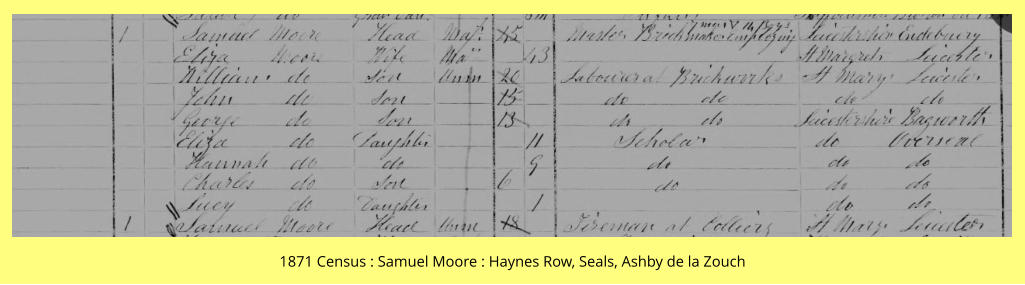 1 Samuel Moore Head Mar 45 Master Brickmaker employing Leicestershire Enderby
Eliza Moore Wife Mar 43 St Margrets Leicester
William do Son Unm 20 Labourer at Brickworks St Marys Leicester
John do Son 15 do do do do
George do Son 13 do do Leicestershire Bagworth
Eliza do Daughter 11 Scholar do Overseal
Hannah do do 9 do do do
Charles do Son 6 do do do
Lucy do Daughter 1 do do
1 Samuel Moore Head Unm 18 Fireman at Colliery St Marys Leicester
1871 Census : Samuel Moore : Haynes Row, Seals, Ashby de la Zouch